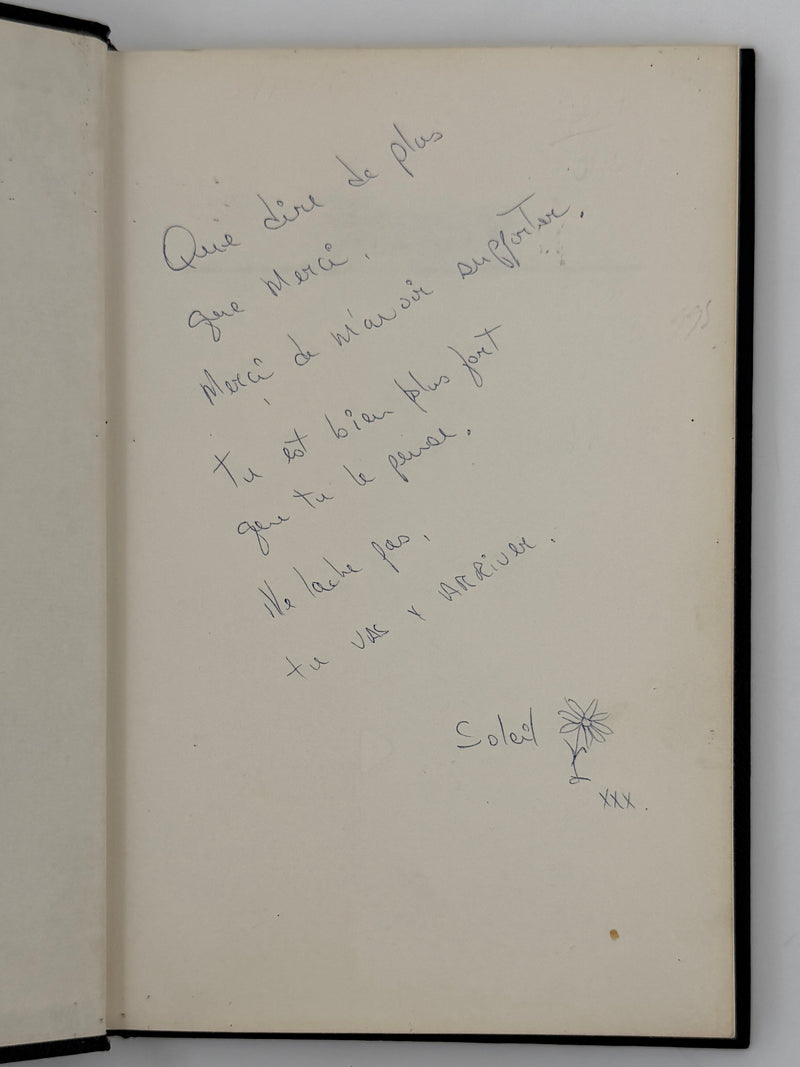 Que dire de plus
que Merci.
Merci de m'avoir supporter.
tu est bien plus fort
que tu le pense.
Ne lache pas,
tu vas y ARRIVER.
Soleil
xxx.